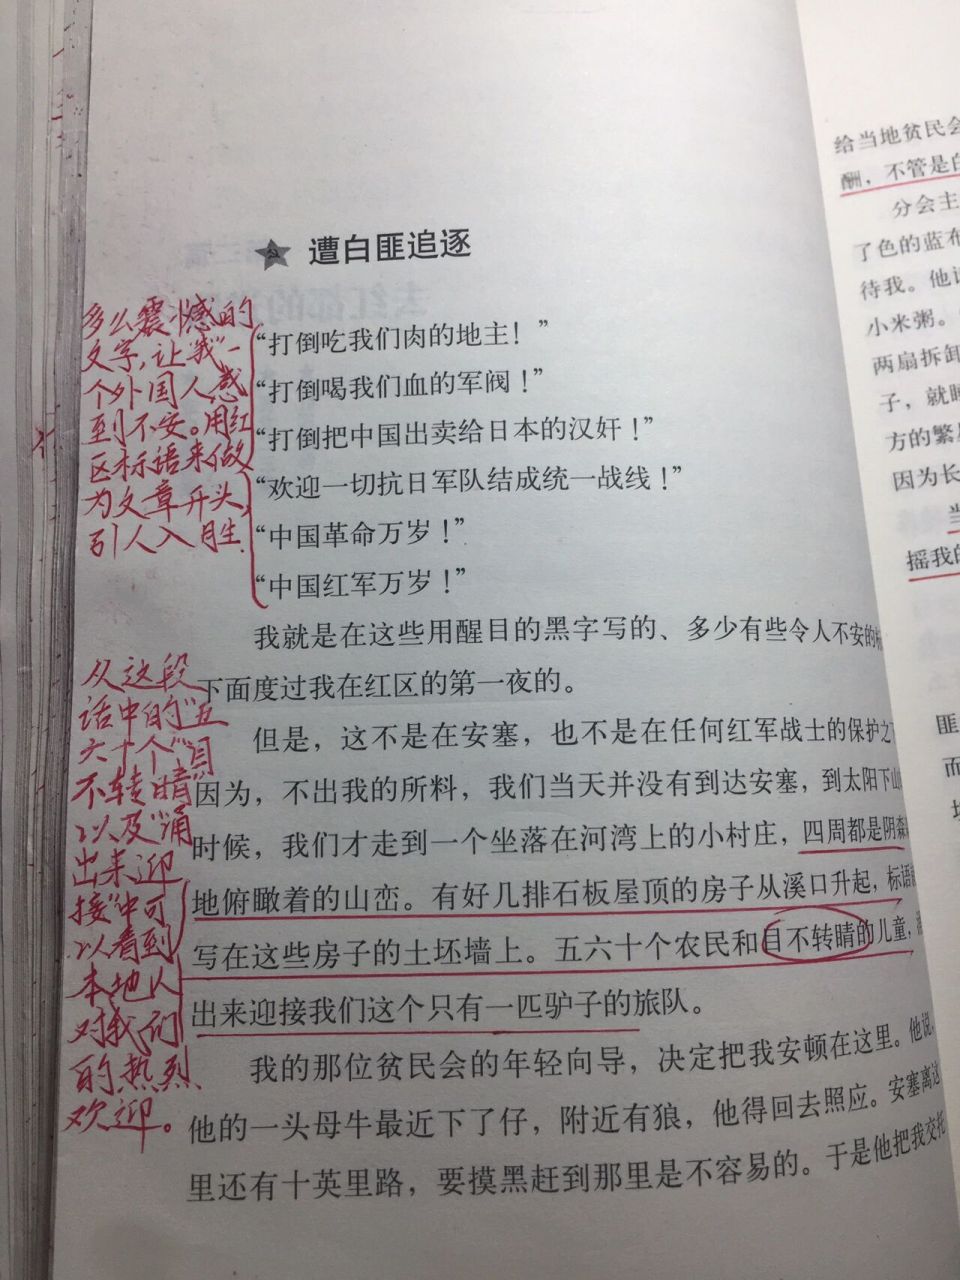 遭白匪追逐
多么震憾的
文字，让“我”一
个外国人感
到不安。用红
区标语来做
为文章开头，
引人入胜
“打倒吃我们肉的地主！”
“打倒喝我们血的军阀！”
“打倒把中国出卖给日本的汉奸！”
“欢迎一切抗日军队结成统一战线！”
“中国革命万岁！”
“中国红军万岁！”
我就是在这些用醒目的黑字写的、多少有些令人不安的标
下面度过我在红区的第一夜的。
但是，这不是在安塞，也不是在任何红军战士的保护之下
因为，不出我的所料，我们当天并没有到达安塞，到太阳下山
时候，我们才走到一个坐落在河湾上的小村庄，四周都是阴森
地俯瞰着的山峦。有好几排石板屋顶的房子从溪口升起，标语
写在这些房子的土坯墙上。五六十个农民和目不转睛的儿童，
出来迎接我们这个只有一匹驴子的旅队。
我的那位贫民会的年轻向导，决定把我安顿在这里。他说，
他的一头母牛最近下了仔，附近有狼，他得回去照应。安塞离这
里还有十英里路，要摸黑赶到那里是不容易的。于是他把我交托
从这段
话中的“五
六十个”“目
不转睛”
以及“涌
出来迎
接”中可
以看到
本地人
对我们
的热烈
欢迎。
给当地贫民会
酬，不管是
分会主
了色的蓝布
待我。他
小米粥。
两扇拆卸
子，就
方的繁
因为长
当
摇我的
匪
而